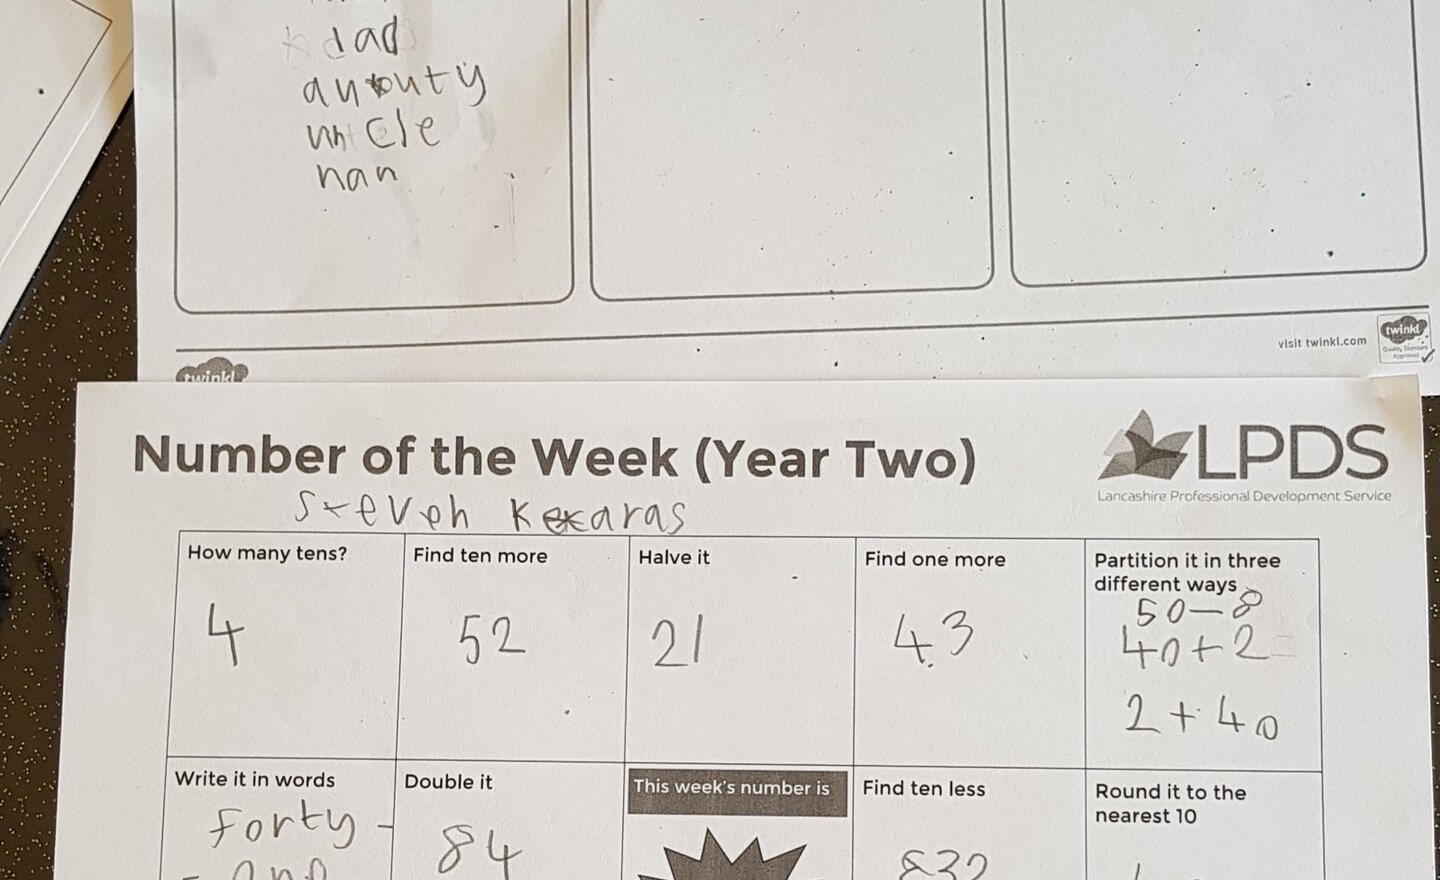 dad
uncle
nan
visit twinkl.com
twinkl
Quality Standard
Approved
twinkl
Number of the Week (Year Two)
LPDS
Lancashire Professional Development Service
Steven
How many tens?
Find ten more
Halve it
Find one more
Partition it in three
different ways
4
52
21
43
50-8
40+2
2+40
Write it in words
Double it
This week's number is
Find ten less
Round it to the
nearest 10
forty-
84